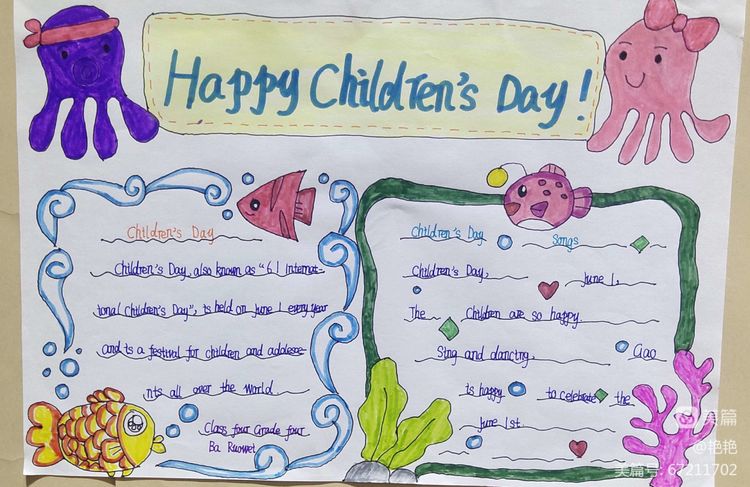 Happy Children's Day!
Children's Day
Children's Day, also known as "6.1 internat-
ional Children's Day", is held on June 1 every year
and is a festival for children and adolesce-
nts all over the world.
Class four Grade four
Ba
Children's Day Songs
Children's Day, June 1,
The children are so happy
Sing and dancing, Gao
is happy to celebrate the
June 1st
美篇
@艳艳
美篇号: 67211702